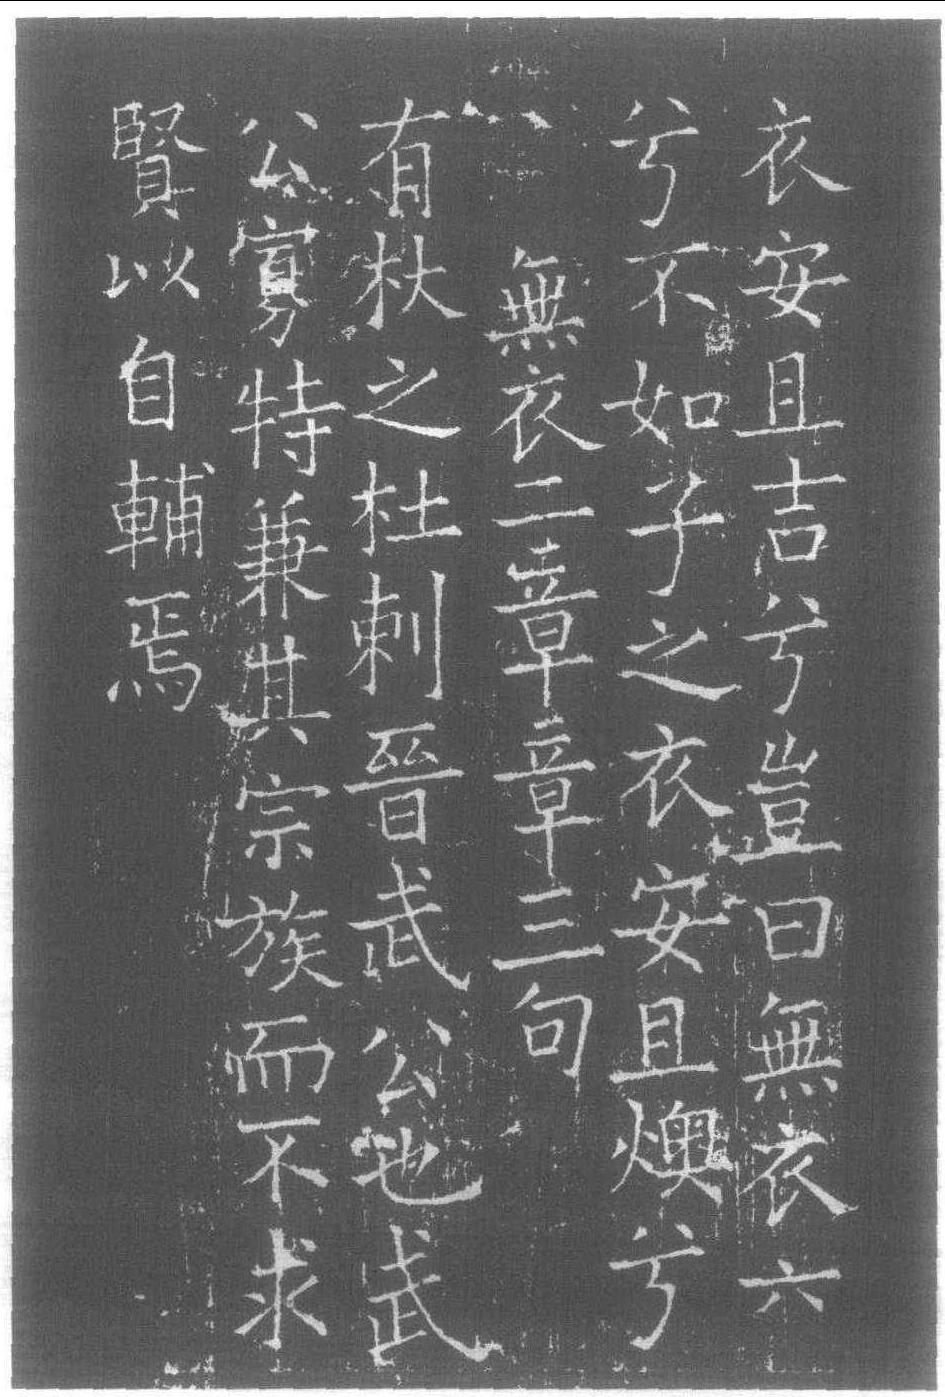 衣安且吉兮豈曰無衣六
兮不如子之衣安且燠兮
無衣二章章三句
有杕之杜刺晉武公也武
公寡特兼其宗族而不求
賢以自輔焉